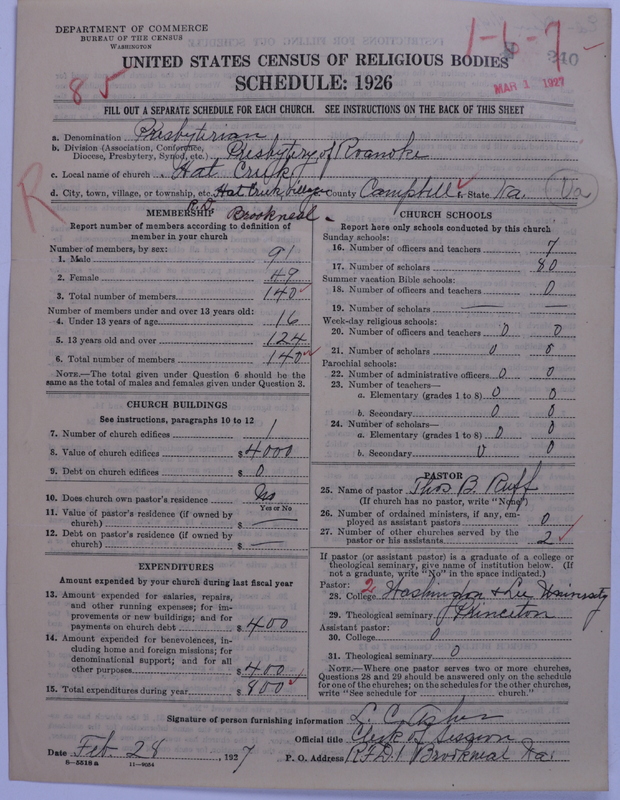 DEPARTMENT OF COMMERCE
BUREAU OF THE CENSUS
WASHINGTON
1-6-7
240
MAR 1 1927
UNITED STATES CENSUS OF RELIGIOUS BODIES
SCHEDULE: 1926
85
FILL OUT A SEPARATE SCHEDULE FOR EACH CHURCH. SEE INSTRUCTIONS ON THE BACK OF THIS SHEET
a. Denomination Presbyterian
b. Division (Association, Conference,
Diocese, Presbytery, Synod, etc.) Presbytery of Roanoke
c. Local name of church Hat Creek
d. City, town, village, or township, etc. Hat Creek, Village County Campbell State Va. Va
R
R.D. Brookneal
MEMBERSHIP
Report number of members according to definition of
member in your church
Number of members, by sex:
1. Male 91
2. Female 49
3. Total number of members 140
Number of members under and over 13 years old:
4. Under 13 years of age 16
5. 13 years old and over 124
6. Total number of members 140
NOTE.—The total given under Question 6 should be the
same as the total of males and females given under Question 3.
CHURCH BUILDINGS
See instructions, paragraphs 10 to 12
7. Number of church edifices 1
8. Value of church edifices $4000
9. Debt on church edifices $ 0
10. Does church own pastor's residence No
Yes or No
11. Value of pastor's residence (if owned by
church) $ —
12. Debt on pastor's residence (if owned by
church) $ —
EXPENDITURES
Amount expended by your church during last fiscal year
13. Amount expended for salaries, repairs,
and other running expenses; for im-
provements or new buildings; and for
payments on church debt $ 400
14. Amount expended for benevolences, in-
cluding home and foreign missions; for
denominational support; and for all
other purposes $ 400
15. Total expenditures during year $ 800
CHURCH SCHOOLS
Report here only schools conducted by this church
Sunday schools:
16. Number of officers and teachers 7
17. Number of scholars 80
Summer vacation Bible schools:
18. Number of officers and teachers 0
19. Number of scholars — —
Week-day religious schools:
20. Number of officers and teachers 0 0
21. Number of scholars 0 0
Parochial schools:
22. Number of administrative officers 0 0
23. Number of teachers—
a. Elementary (grades 1 to 8) 0 0
b. Secondary 0 0
24. Number of scholars—
a. Elementary (grades 1 to 8) 0 0
b. Secondary 0 0
PASTOR
25. Name of pastor Thos B. Ruff
(If church has no pastor, write "None")
26. Number of ordained ministers, if any, em-
ployed as assistant pastors 0
27. Number of other churches served by the
pastor or his assistants 2
If pastor (or assistant pastor) is a graduate of a college or
theological seminary, give name of institution below. (If
not a graduate, write "No" in the space indicated.)
Pastor: 2
28. College Washington & Lee University
29. Theological seminary Princeton
Assistant pastor:
30. College 0
31. Theological seminary 0
NOTE.—Where one pastor serves two or more churches,
Questions 28 and 29 should be answered only on the schedule
for one of the churches; on the schedules for the other churches,
write "See schedule for church."
Signature of person furnishing information L. C. Asher
Official title Clerk of Session
Date Feb. 28, 1927 P. O. Address R.F.D. 1 Brookneal Va.
8-5518 a 11-9054